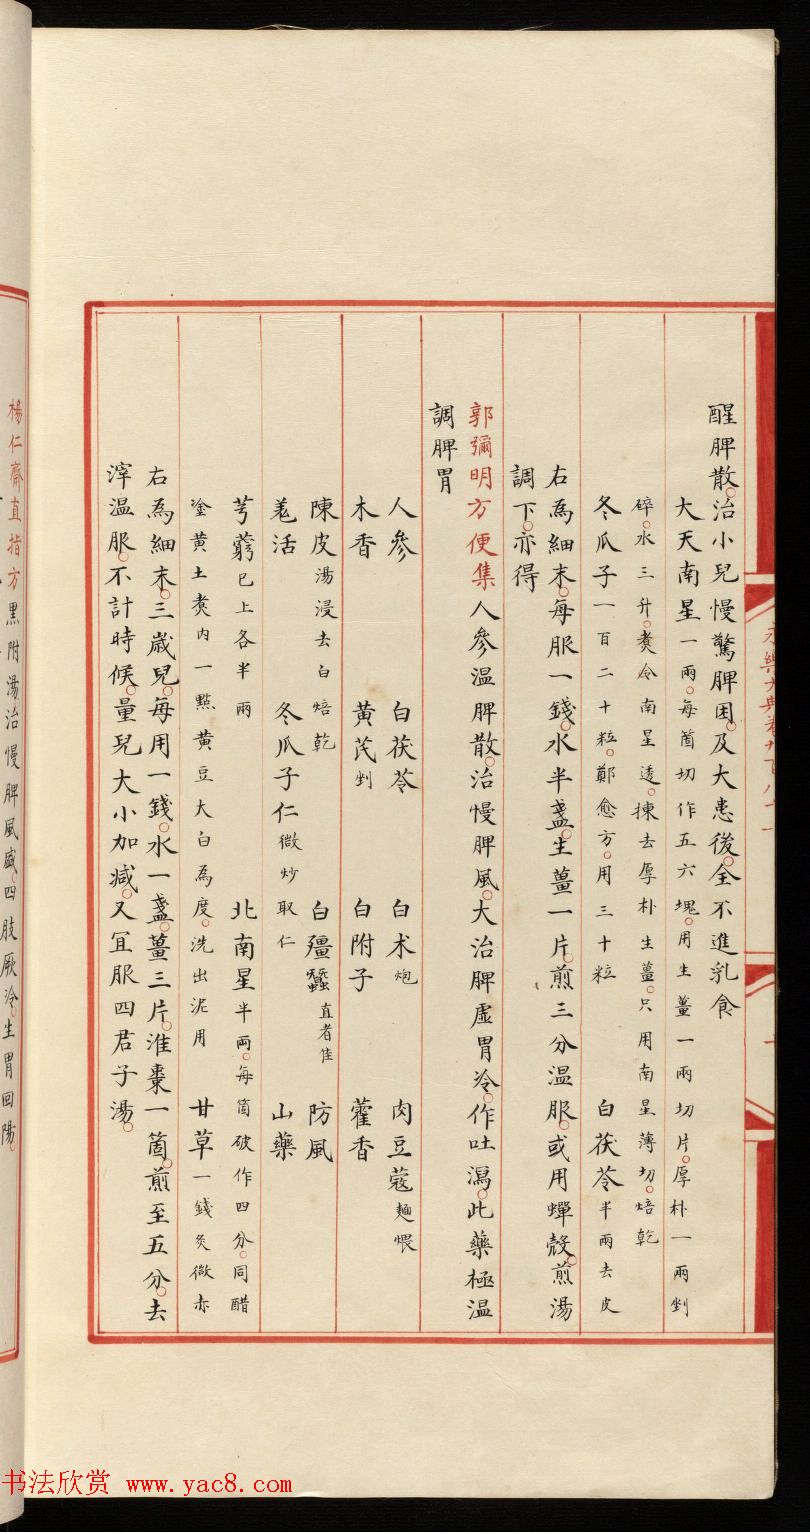 醒脾散。治小兒慢驚脾困。及大患後。全不進乳食
大天南星一兩。每箇切作五六塊。用生薑一兩切片。厚朴一兩剉
碎。水三升。煑令南星透。揀去厚朴生薑。只用南星薄切。焙乾
冬瓜子一百二十粒。鄭愈方。用三十粒 白茯苓半兩去皮
右為細末。每服一錢。水半盞。生薑一片。煎三分温服。或用蟬殼。煎湯
調下。亦得
郭彌明方便集人參温脾散。治慢脾風。大治脾虛胃冷。作吐瀉。此藥極温
調脾胃
人參 白茯苓 白术炮 肉豆蔻麵煨
木香 黄芪剉 白附子 藿香
陳皮湯浸去白焙乾 白殭蠶直者佳 防風
羗活 冬瓜子仁微炒取仁 山藥
芎藭已上各半兩 北南星半兩。每箇破作四分。同醋
塗黄土煑内一點黄豆大白為度。洗出泥用 甘草一錢炙微赤
右為細末。三歲兒。每用一錢。水一盞。薑三片。淮棗一箇。煎至五分。去
滓温服。不計時候。量兒大小加減。又宜服四君子湯。
楊仁齋直指方黑附湯治慢脾風盛。四肢厥冷。生胃回陽。
永樂大典卷九百八十一
書法欣赏 www.yac8.com